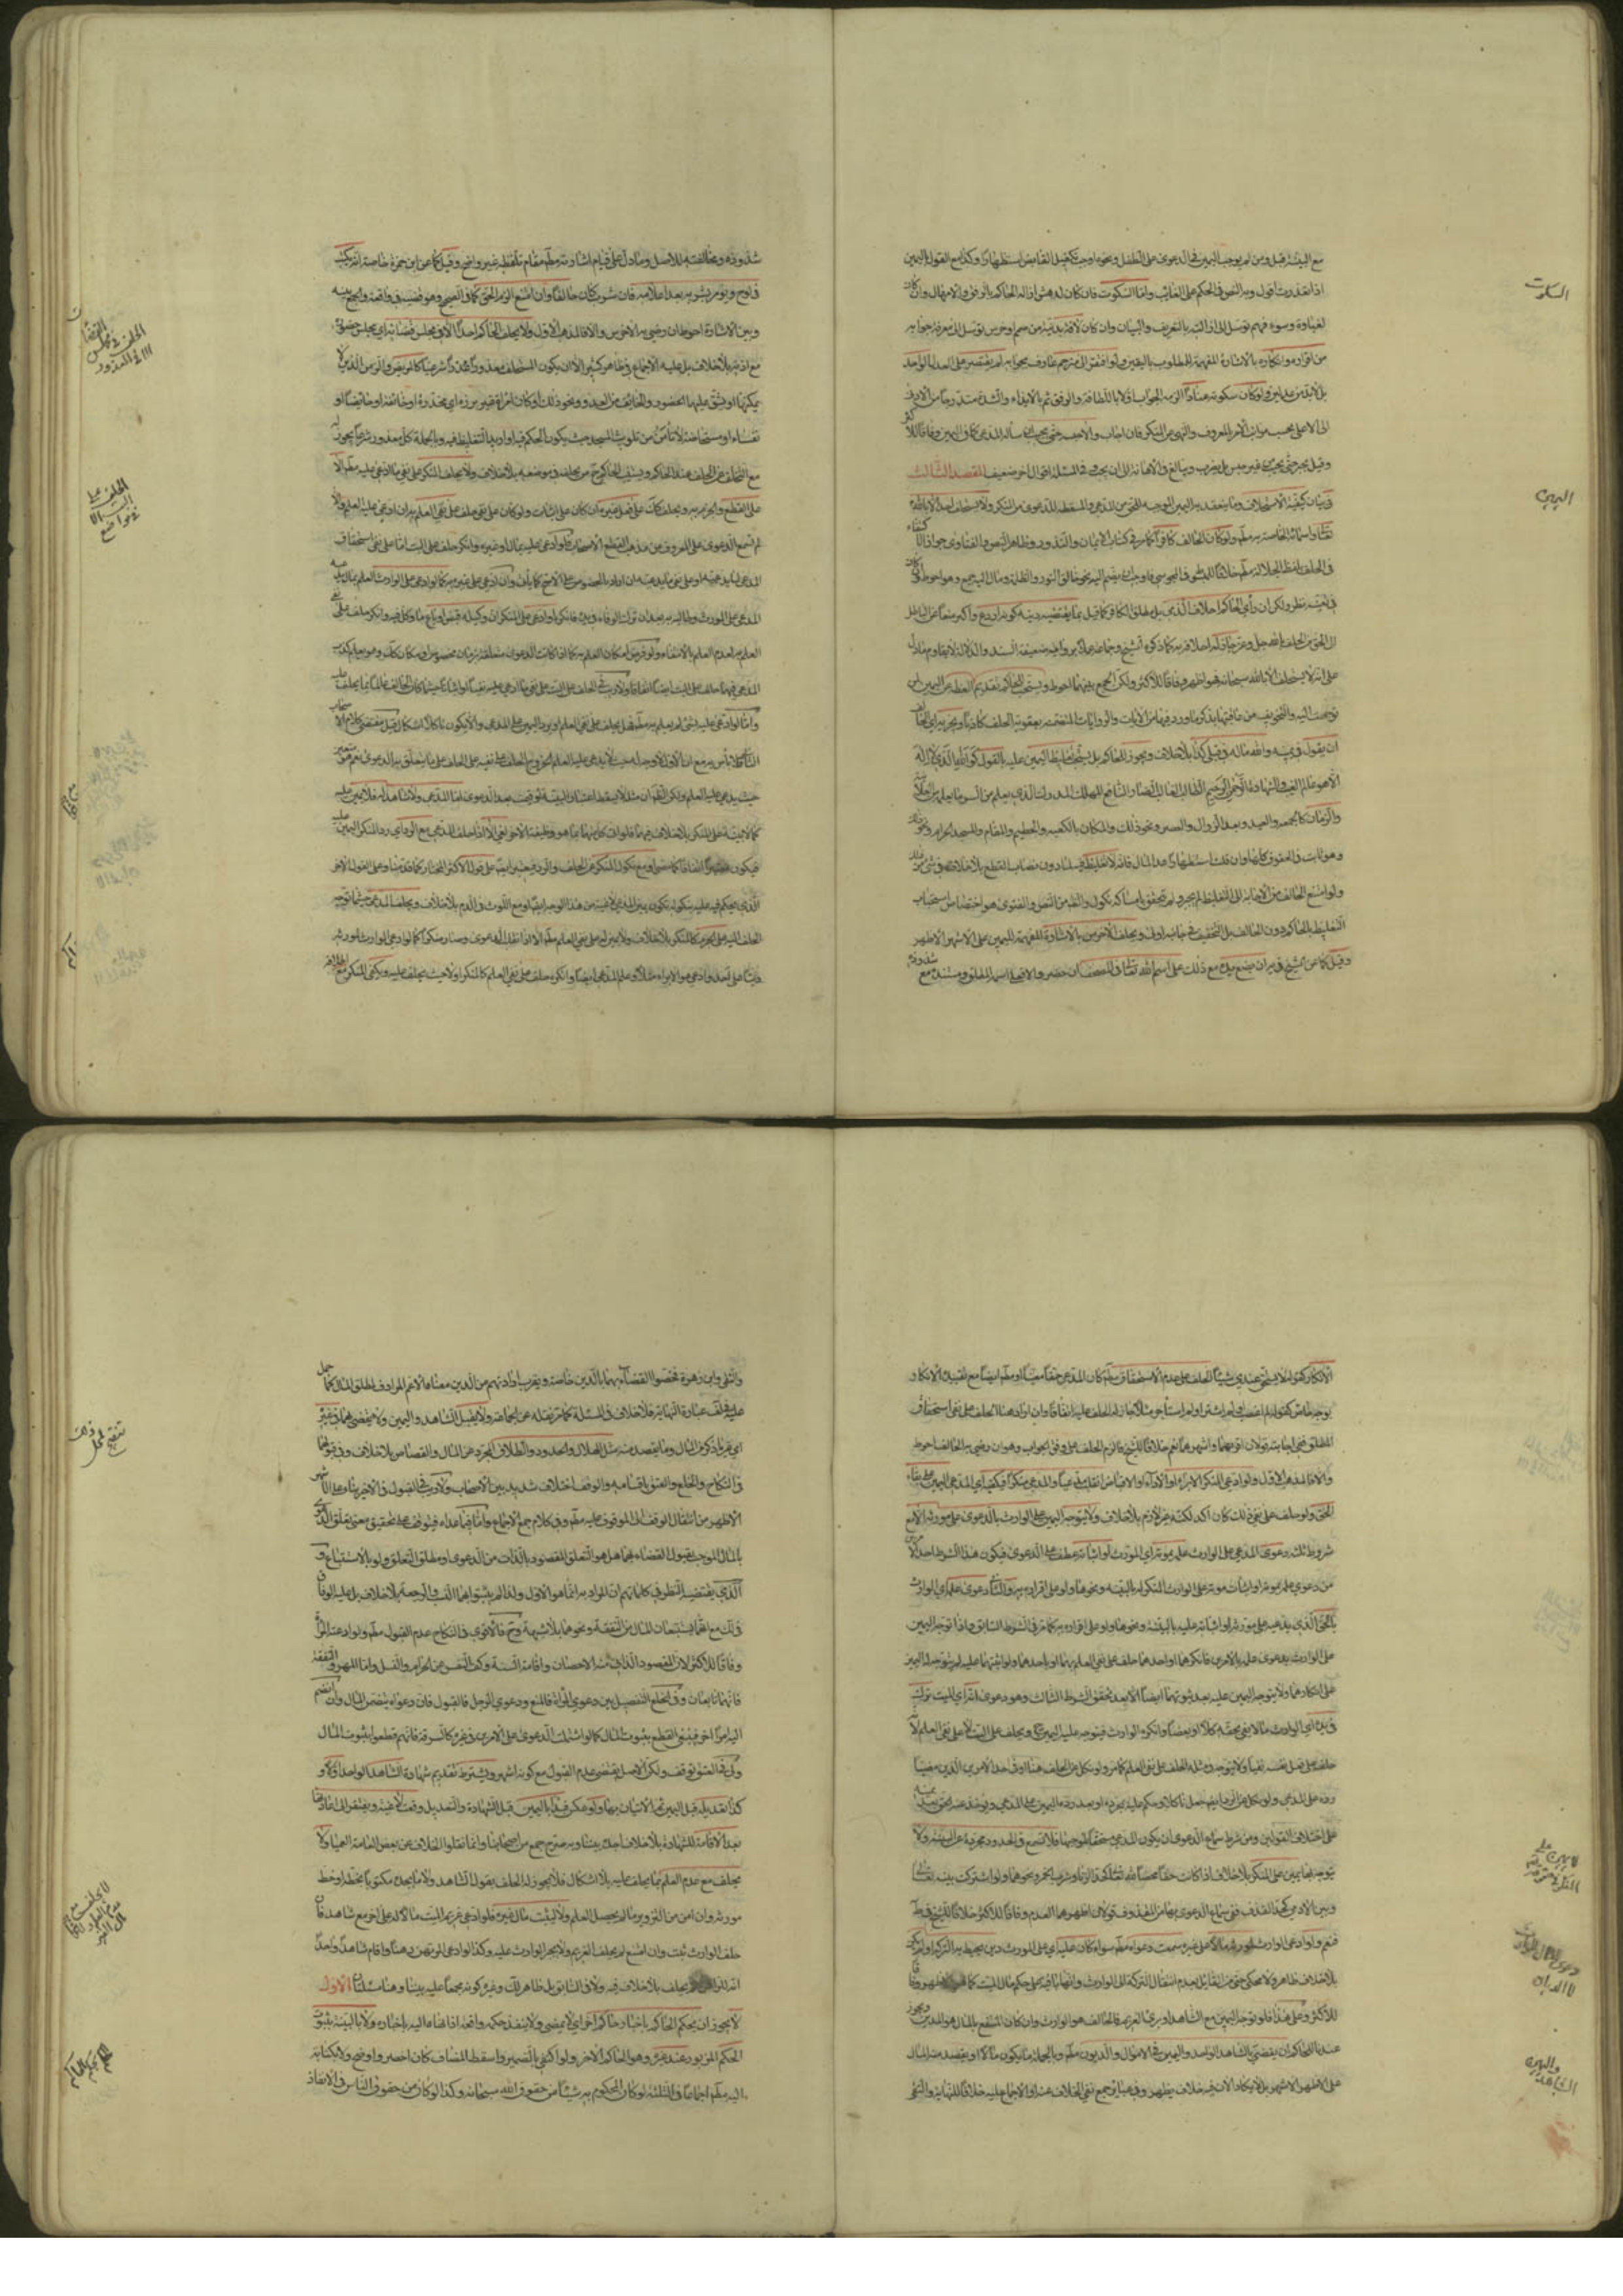 السكوت
مع البينة قبل ومن لم يوجب اليمين في الدعوى على الطفل ونحوه اوجب تكفيل القابض استظهارا وكذا مع القول باليمين
اذا تعذرت اقول وبه النص في الحكم على الغائب واما السكوت فان كان لدهش ازاله الحاكم بالرفق والامهال وان كان
لغباوة وسوء فهم توصل الى ازالته بالتعريف والبيان وان كان لآفة بدنية من صمم او خرس توصل الى معرفة جوابه
من اقراره وانكاره بالاشارة المفهمة للمطلوب باليقين ولو افتقر الى مترجم عارف بجوابه لم يقتصر على العدل الواحد
بل لابد من عدلين ولو كان سكوته عنادا الزمه الجواب اولا باللطافة والرفق ثم بالايذاء والشدة متدرجا من الادنى
الى الاعلى بحسب مراتب الامر بالمعروف والنهي عن المنكر فان اجاب والا حبس حتى يجيب ان سأله المدعي كما في اليمين وفاقا للاكثر
وقيل يجبر حتى يجيب من غير حبس بل يضرب ويبالغ في الاهانة الى ان يجيب وفي المسئلة اقوال اخر ضعيف المقصد الثالث
اليمين
في بيان كيفية الاستحلاف وما ينعقد به اليمين الموجبة للحق من المدعي والمسقطة للدعوى من المنكر ولا يستحلف احد الا بالله
تعالى واسمائه الخاصة به مطم ولو كان الحالف كافرا كما مر في كتاب الايمان والنذور وظاهر النصوص والفتاوى جواز الاكتفاء
في الحلف بلفظ الجلالة مطم خلافا للمبسوط في المجوسي فاوجب ان يضم اليه نحو خالق النور والظلمة ومال اليه جمع وهو احوط
في تعينه نظر ولكن ان رأى الحاكم احلاف الذمي بل مطلق الكافر كما قيل بما يقتضيه دينه كونه اردع واكبر منعا عن الباطل
الى الحق من الحلف بالله جل وعز جاز له احلافه به كما ذكره الشيخ وجماعة عملا برواية ضعيفة السند والدلالة لا يقاوم ما دل
على انه لا يستحلف الا بالله سبحانه فهو اظهر وفاقا للاكثر ولكن الجمع بينهما احوط ويستحب للحاكم تقديم العظة عن اليمين لمن
توجهت اليه والتخويف من عاقبتها بذكر ما ورد فيها من الآيات والروايات المتضمنة بعقوبة الحالف كاذبا ويجزيه اي الحالف
ان يقول في يمينه والله ما له قبلي كذا بلا خلاف ويجوز للحاكم بل يستحب تغليظ اليمين عليه بالقول كوالله الذي لا اله
الا هو عالم الغيب والشهادة الرحمن الرحيم الطالب الغالب الضار النافع المهلك المدرك الذي يعلم من السر ما يعلم من العلانية
والزمان كالجمعة والعيد وبعد الزوال والعصر ونحو ذلك والمكان بالكعبة والحطيم والمقام والمسجد الحرام ونحو ذلك
وهو ثابت في الحقوق كلها وان قلت استظهارا عدا المال فانه لا تغليظ فيه لما دون نصاب القطع بلا خلاف في شيء من ذلك
ولو امتنع الحالف من الاجابة الى التغليظ لم يجبر ولم يتحقق بامساكه نكول والظ من النص والفتوى هو اختصاص استحباب
التغليظ بالحاكم دون الحالف بل التخفيف في جانبه اولى ويحلف الاخرس بالاشارة المفهمة لليمين على الاشهر الاظهر
وقيل كما عن الشيخ في ية ان يضع يده مع ذلك على اسم الله تعالى في المصحف ان حضر والا فعلى اسمه المطلق ومستنده مع شذوذه
شذوذه ومخالفته للاصل وما دل على قيام اشارته مطم مقام تلفظه غير واضح وقيل كما عن ابن حمزة خاصة انه يكتب
في لوح ويؤمر بشربه بعد اعلامه فان شربه كان حالفا وان امتنع الزم الحق كما في الصحيح وهو قضية في واقعة والجمع بينه
وبين الاشارة احوط ان رضي به الاخرس والا فالمذهب الاول ولا يحلف الحاكم احدا الا في مجلس قضائه اي مجلس حضوره
الحلف في مجلس القضاء الا في المعذور
مع اذنه بلا خلاف بل عليه الاجماع في ظاهر كثير الا ان يكون المستحلف معذورا عذرا شرعيا كالمريض والزمن الذين لا
يمكنهما او يشق عليهما الحضور والخائف من العدو ونحو ذلك او كان امرأة غير برزة اي مخدرة او حائضا او
نفساء او مستحاضة لا تأمن من تلويث المسجد حيث يكون الحكم فيه او اريد التغليظ فيه وبالجملة كل معذور شرعا يجوز له
مع التخلف عن الحلف عند الحاكم ويستنيب الحاكم ح من يحلف في موضعه بلا خلاف ولا يحلف المنكر على نفي ما ادعى عليه مطم الا
الحلف على البت الا في مواضع
على القطع والجزم به ويحلف كك على فعل غيره ان كان على اثبات ولو كان على نفي حلف على نفي العلم به ان ادعي عليه العلم والا
لم تسمع الدعوى على المعروف من مذهب الاصحاب فلو ادعى عليه بمال او غيره وانكر حلف على البت اما على نفي استحقاق
المدعي لما يدعيه او على نفي ما يدعيه ان اراد بالخصوص على الاصح كما يأتي وان ادعي على غيره به كما لو ادعى على الوارث العلم بمال يدعيه
المدعي على المورث وطالبه به بعد ان ترك الوفاء وفيه فانكره او ادعى على المنكر ان وكيله قبض او باع ما وكل فيه وانكر حلف على نفي
العلم به لعدم العلم بالانتفاء ولو فرض امكان العلم به كما اذا كانت الدعوى متعلقة بزمان مخصوص او مكان كك وهو يعلم كذب
المدعي فيهما حلف على البت ايضا اتفاقا ولا ريب في الحلف على البت على نفي ما ادعي عليه نفيا او اثباتا حيثما كان الحالف عالما بما يحلف عليه
واما لو ادعي عليه بشيء لم يعلم به مطم فهل يحلف على نفي العلم او يرد اليمين على المدعي والا فيكون ناكلا اشكال وقيل مقتضى كلام الاصحاب
حيث يدعى عليه العلم ولكن الظ ان مثله لا يسقط اعتبار البينة لو قيمت بعد الدعوى اما المدعي ولا شاهد له فلا يمين عليه
كما لا بينة على المنكر بلا خلاف فيهما فلو انعكسا فيما هو وظيفتهما لاخر لغي الا اذا حلف المدعي مع الرد اي رد المنكر اليمين عليه
فيكون اتفاقا كما مضى او مع نكول المنكر عن الحلف والرد فيحلف ايضا على قول الاكثر المختار كما قدمنا وعلى القول الاخر
الذي يحكم فيه عليه بنكوله تكون يمين المدعي لاغية من هذا الوجه ايضا ومع اللوث والدم بلا خلاف ويحلف المدعي حيثما توجه
الحلف اليه على الجزم كالمنكر بلا خلاف ولا يمين له على نفي العلم مطم الا اذا انقلب الدعوى وصار منكرا كما لو ادعى الوارث لمورثه
دينا على احد وادعى هو الابراء مثلا وعلم المدعي ايضا وانكره حلف على نفي العلم كالمنكر اولا حيث يحلف عليه ويكفي المنكر مع اطلاقه
الانكار كقوله لا يستحق عندي شيئا الحلف على عدم الاستحقاق مطم كان المدعي حقا معينا او مطم ايضا مع تقييد الانكار
بوجه خاص كقوله لم اغصب او لم اشتر او لم استأجر مثلا كما جاز له الحلف عليه اتفاقا وان اراد هنا الحلف على نفي استحقاق
المطلق ففي اجابته قولان اقويهما واشهرهما نعم خلافا للشيخ فالزم الحلف على وفق الجواب وهو ان رضي به الحالف احوط
والا فالمذهب الاول ولو ادعى المنكر الابراء او الاداء او الاقباض انقلب مدعيا والمدعي منكرا فيكفيه اي المدعي اليمين على بقاء
الحق ولو حلف على نفي ذلك كان اكد لكنه غير لازم بلا خلاف ولا يتوجه اليمين على الوارث بالدعوى على مورثه الا مع
شروط ثلث دعوى المدعي على الوارث علمه بموته اي المورث او اثباته عطف على الدعوى فيكون هذا الشرط احد الامرين
من دعوى علمه بموته او اثبات موته على الوارث المنكر له بالبينة ونحوها ولو على اقراره به والثاني دعوى علمه اي الوارث
بالحق الذي يدعيه على مورثه او اثباته عليه بالبينة ونحوها ولو على اقراره به كما مر في الشرط السابق واذا توجه اليمين
على الوارث بدعوى علمه بالامرين فانكرهما او احدهما حلف على نفي العلم بهما او باحدهما ولو اثبتهما عليه لم يتوجه له اليمين
على انكارهما ولا يتوجه اليمين عليه بعد ثبوتهما ايضا الا بعد تحقق الشرط الثالث وهو دعوى انه اي الميت ترك
في يده اي الوارث مالا يفي بحقه كلا او بعضا وانكره الوارث فيتوجه عليه اليمين ح ويحلف على البت لا على نفي العلم لانه
حلف على فعل نفسه نفيا ولا يتوجه في مثله الحلف على نفي العلم كما مر ولو نكل عن الحلف هنا او في احد الامرين الذين مضيا
رده على المدعي ولو نكل عن الرد ايضا جعل ناكلا وحكم عليه بمجرده او بعد رد اليمين على المدعي ويؤخذ منه الحق بعد يمينه
على اختلاف القولين ومن شرط سماع الدعوى ان يكون للمدعي مستحقا لموجبها فلا تسمع في الحدود مجردة عن البينة ولا
يتوجه بها يمين على المنكر بلا خلاف اذا كانت حقا محضا لله تعالى كحد الزنا وشرب الخمر ونحوهما ولو اشتركت بينه تعالى
وبين الادمي كحد القذف ففي سماع الدعوى بها من المقذوف قولان اظهرهما العدم وفاقا للاكثر خلافا للشيخ في ط
فنعم ولو ادعى الوارث لمورثه مالا على غيره سمعت دعواه مطم سواء كان عليه اي على المورث دين يحيط به التركة او لم يكن
دعوى المال للوارث لا الديان
بلا خلاف ظاهر ولا محكي حتى من القائل بعدم انتقال التركة الى الوارث وانها باقية على حكم مال الميت كما هو
للاكثر وعلى هذا فلو توجه اليمين مع الشاهد او برد الغريم فالحالف هو الوارث وان كان المنتفع بالمال هو المدين ويجوز
الشاهد واليمين
عندنا للحاكم ان يقضي بالشاهد الواحد واليمين في الاموال والديون مطم وبالجملة ما يكون مالا او يقصد منه المال
على الاظهر الاشهر بل لا يكاد الان فيه خلاف يظهر وفي عبائر جمع نفي الخلاف عنه او الاجماع عليه خلافا للنهاية والتقي
والتقي وابن زهرة فخصوا القضاء بهما بالدين خاصة ويقرب ارادتهم من الدين معناه الاعم المرادف لمطلق المال كما حمل
عليه في لف عبارة النهاية فلا خلاف في المسئلة كما مر نقله عن الجماعة ولا يقبل الشاهد واليمين ولا يقضى بهما في غيره
اي غير ما ذكر من المال وما يقصد منه مثل الهلال والحدود والطلاق المجرد عن المال والقصاص بلا خلاف وفي قبولهما
في النكاح والخلع والعتق باقسامه والوقف اختلاف شديد بين الاصحاب ولا ريب في القبول في الاخير بناء على الاشهر
الاظهر من انتقال الوقف الى الموقوف عليه مطم وفي كلام جمع الاجماع واما فيما عداه فيتوقف على تحقيق معنى تعلق الدعوى
بالمال الموجب لقبول القضاء بهما هل هو التعلق المقصود بالذات من الدعوى او مطلق التعلق ولو بالاستتباع و
الذي يقتضيه النظر في كلماتهم ان المراد به انما هو الاول ولذا لم يثبتوا بهما النسب والرجعة بلا خلاف بل عليه الوفاق
في لك مع انهما يستتبعان المال من النفقة ونحوها بلا شبهة وح فالاقوى في النكاح عدم القبول مطم ولو ادعته المرأة
وفاقا للاكثر لان المقصود الذاتي منه الاحصان واقامة السنة وكف النفس عن الحرام والنسل واما المهر والنفقة
فانهما تابعان وفي الخلع التفصيل بين دعوى المرأة فالمنع ودعوى الرجل فالقبول فان دعواه يتضمن المال وان انضم
اليه امر اخر فينبغي القطع بثبوت المال كما لو اشتملت الدعوى على الامرين في غيره كالسرقة فانهم قطعوا بثبوت المال
ولي في العتق توقف ولكن الاصل يقتضي عدم القبول مع كونه اشهر ويشترط تقديم شهادة الشاهد الواحد اولا و
كذا تعديله قبل اليمين ثم الاتيان بها ولو عكس فبدأ باليمين قبل الشهادة والتعديل وقعت لاغية ويفتقر الى اعادتها
بعد الاقامة للشهادة بلا خلاف اجده بيننا وبه صرح جمع من اصحابنا وانما نقلوا الخلاف عن بعض العامة العمياء ولا
يحلف مع عدم العلم بما يحلف عليه بلا اشكال فلا يجوز له الحلف بقول الشاهد ولا بما يجده مكتوبا بخطه او خط
مورثه وان امن من التزوير ما لم يحصل العلم ولا ليثبت مال غيره فلو ادعى غريم الميت مالا له على اخر مع شاهد فان
حلف الوارث ثبت وان امتنع لم يحلف الغريم ولا يجبر الوارث عليه وكذا لو ادعى المرتهن رهنا واقام شاهدا واحدا
انه للراهن لم يحلف بلا خلاف فيه ولا في السابق بل ظاهر لك وغيره كونه مجمعا عليه بيننا وهنا مسئلتان الاولى
لا يجوز ان يحكم الحاكم باخبار حاكم اخر اي لا يمضي ولا ينفذ حكمه واقعة اذا انهاه اليه باخباره ولا بالبينة بثبوت
الحكم المزبور عند غيره وهو الحاكم الاخر ولو اكتفى بالضمير واسقط المضاف كان اخصر واوضح ولا بكتابه
اليه مطم اجماعا في الثلثة لو كان المحكوم به شيئا من حقوق الله سبحانه وكذا لو كان من حقوق الناس في الانفاذ